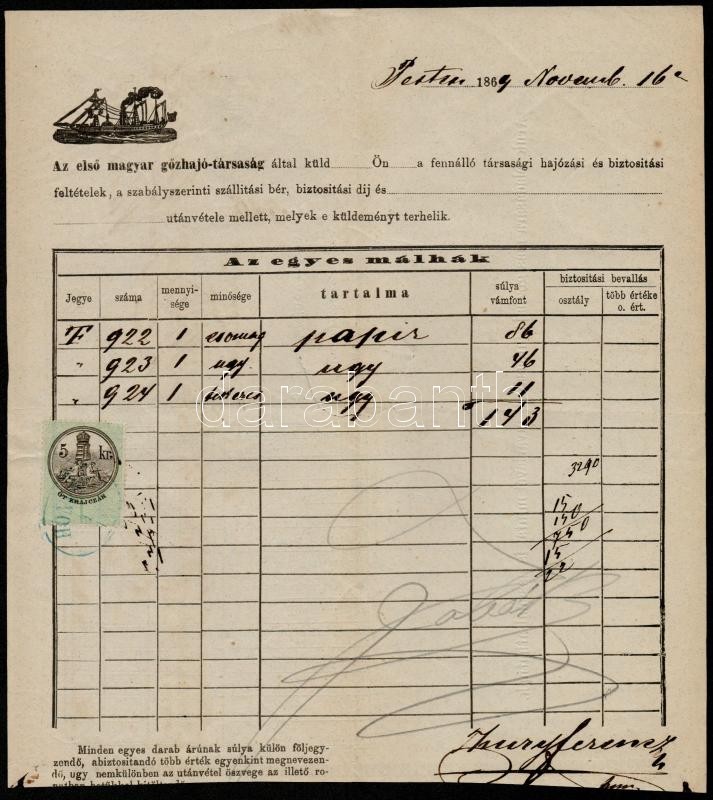 Pesten 1869 Novemb. 16
Az első magyar gőzhajó-társaság által küld Ön a fennálló társasági hajózási és biztositási
feltételek, a szabályszerinti szállitási bér, biztositási dij és
utánvétele mellett, melyek e küldeményt terhelik.
Az egyes málhák
Jegye száma mennyi-sége minősége tartalma súlya vámfont biztositási bevallás
osztály több értéke o. ért.
F 922 1 csomag papir 86
" 923 1 ugy ugy 46
" 924 1 ugy 11
143
5 kr.
ÖT KRAJCZÁR
3290
15
150
750
15
22
darabanth
Minden egyes darab árúnak súlya külön följegy-
zendő, abiztositandó több érték egyenkint megnevezen-
dő, ugy nemkülönben az utánvétel öszvege az illető ro-